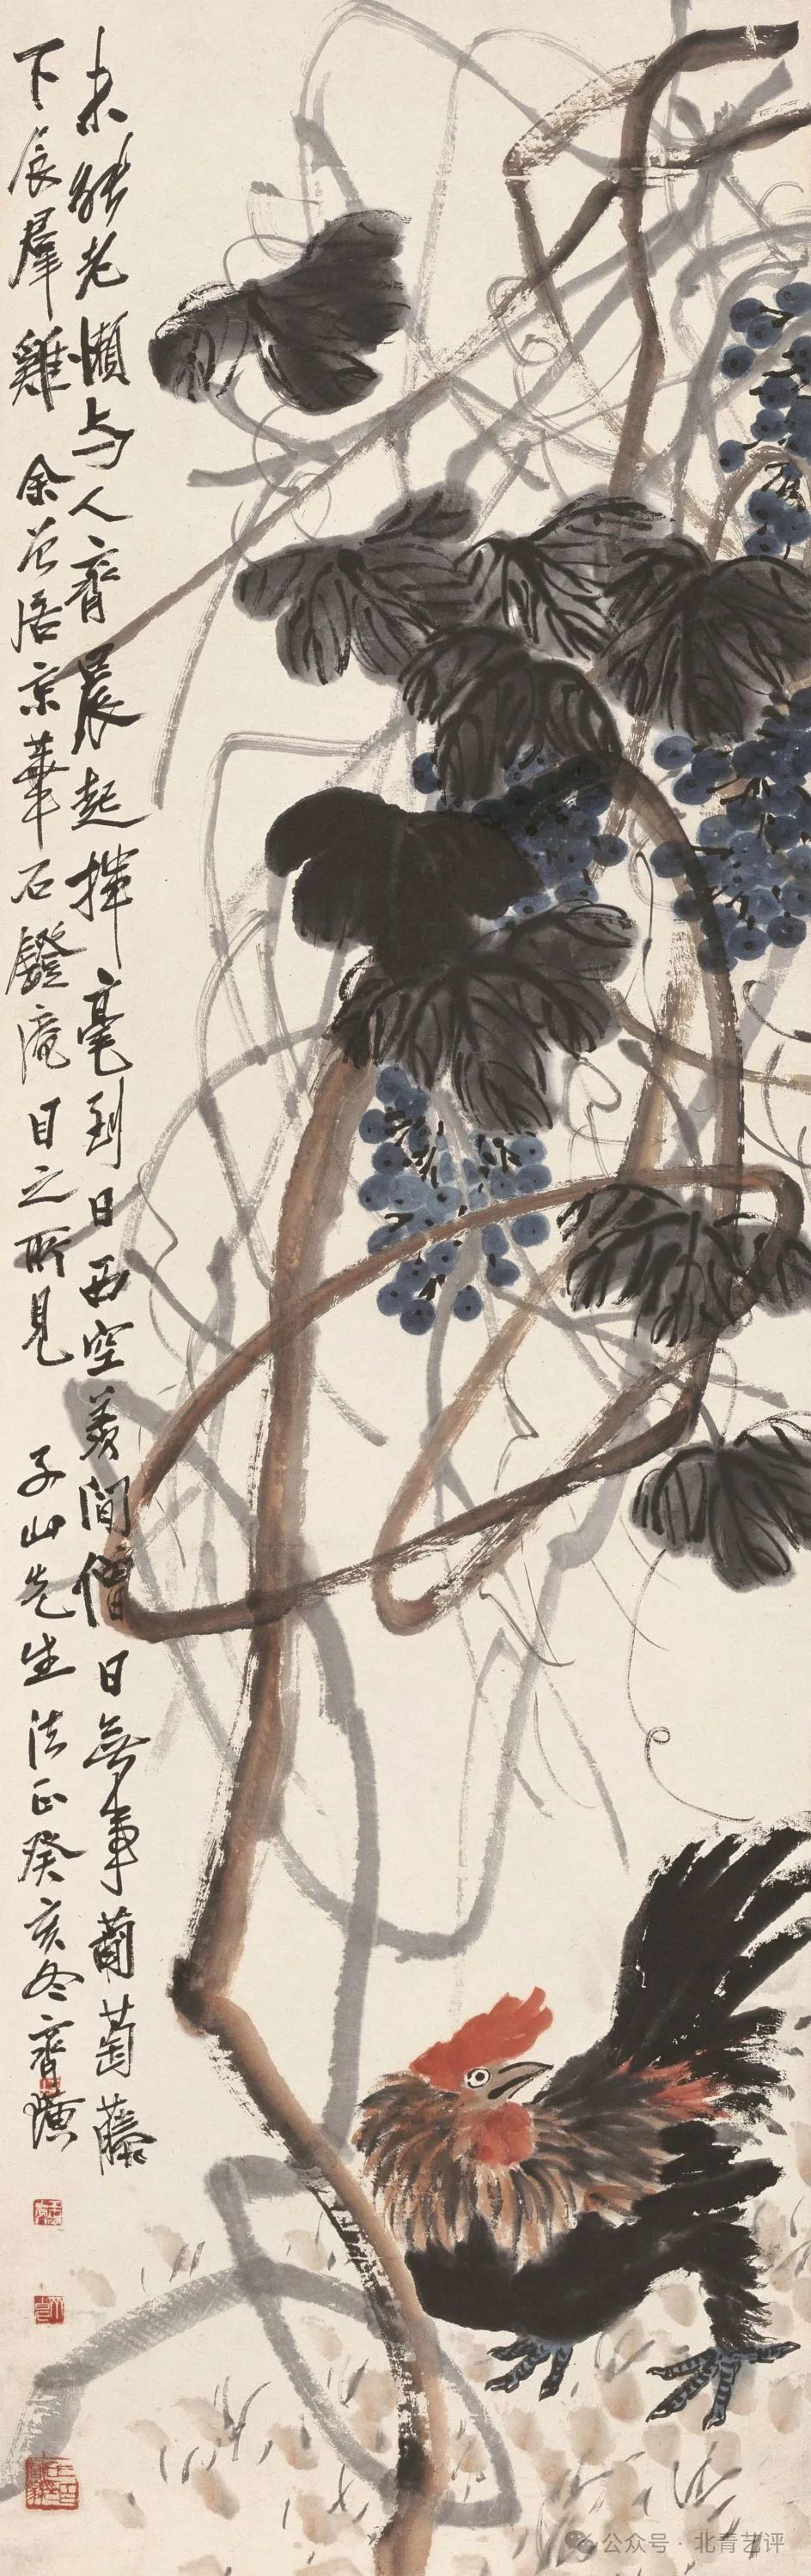 未能老懶与人齊晨起揮毫到日西空羨閒僧日無事葡萄藤
下羣雞 余居京華石鐙庵目之所見 子山先生法正癸亥冬齊璜
公众号 · 北青艺评